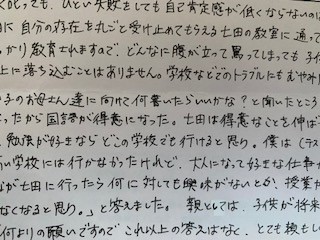 ひどい失敗をしても自己肯定感が低くならないのは
に自分の存在を丸ごと受け止めてもらえる七田の教室に通って
っかり教育されますので、どんなに腹が立って罵ってしまっても子供
上に落ち込むことはありません。学校などでのトラブルにも
子のお母さん達に向けて何書いたらいいかな？と聞いたところ
ったから国語が得意になった。七田は得意なことを伸ば
、勉強が好きならどこの学校でも行けると思う。僕は
い学校には行かなかったけれど、大人になって好きな仕事が
が七田に行ったら何に対しても興味がないとか、授業が
なくなると思う。」と答えました。親としては、子供が将来
何よりの願いですのでこれ以上の答えはなく、とても